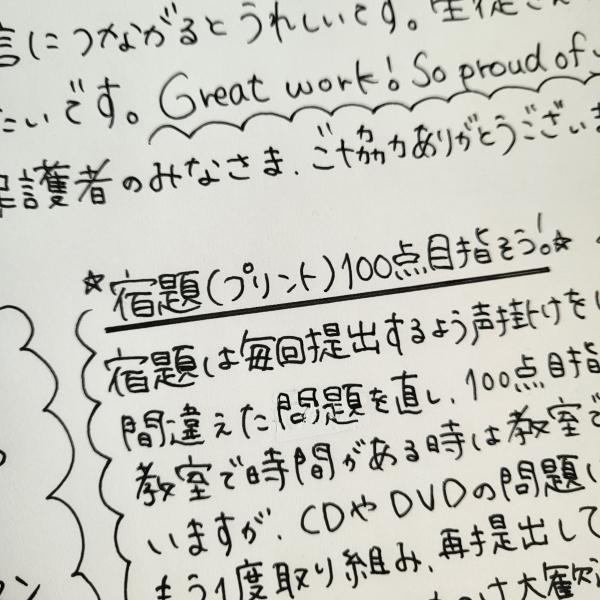 につながるとうれしいです。生徒さん
たいです。Great work! So proud of
護者のみなさま、ご協力ありがとうございま
☆宿題(プリント)100点目指そう!☆
宿題は毎回提出するよう声掛けをし
間違えた問題を直し、100点目指
教室で時間がある時は教室で
いますが、CDやDVDの問題
もう1度取り組み、再提出して
大歓